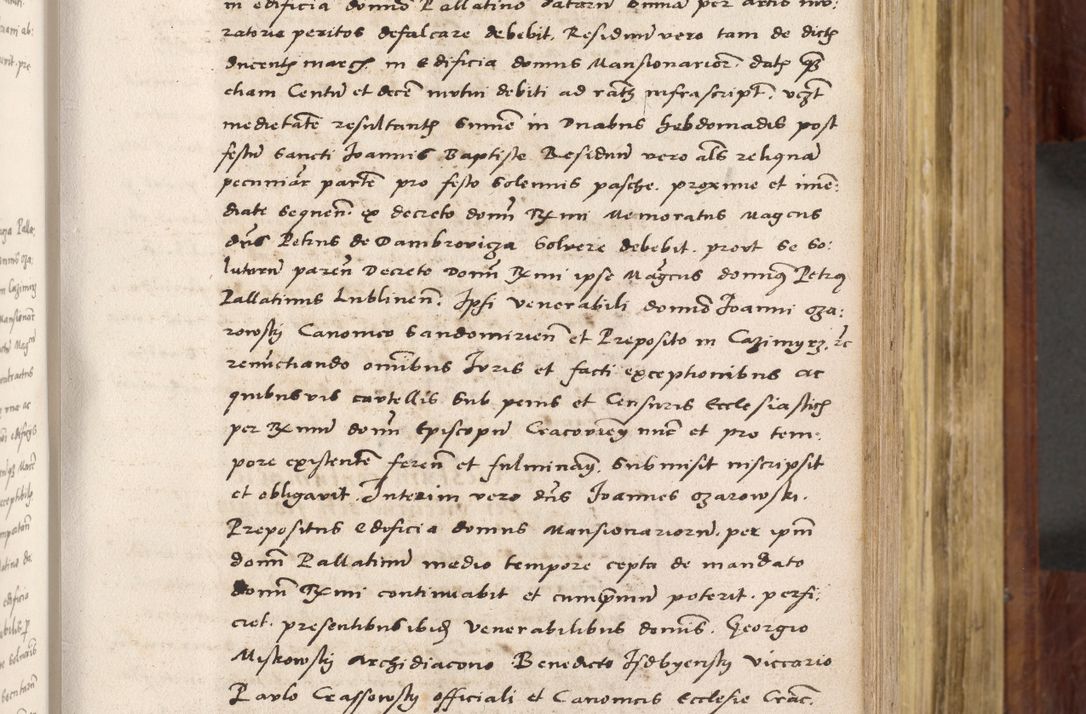 in edificia domus Pallatino datarũ summã per artis mu⸗
ratorie peritos defalcare debebit. Residuũ vero tam de dict̃
ducent̃ march. in edificia domus Mansionariorũ. dat̃
etiam Centũ et decẽ mutui debiti ad rat̃ infrascript̃. vcz̃t
medietatẽ resultant̃ sumẽ in Duabus hebdomadis post
festũ Sancti Joannis Baptiste. Residuũ vero als̃ reliquã
pecuniar̃ partẽ pro festo solennis pasche. proxime et ime⸗
diate sequen̄. ex decreto domñ Rx̃mi Memoratus Magcus
dñs Petrus de Dambrovicza Solvere debebit. prout se so⸗
luturũ paren̄ Decreto Domñ Rx̃mi ipse Mag̃cus dominꝰ Petrꝰ
Pallatinus Lublinen̄. Ipsi venerabili domino Joanni oza⸗
rowskỹ Canonico Sandomirien̄ et Preposito in Cazimyrz. &c
renũctiando omĩbus Juris et facti exceptionibus ac
quibusvis cautellis sub penis et Censuris Ecclesiastic̃
per Rx̃mũ domñ Episcopũ Cracovien̄ nũc et pro tem⸗
pore existentẽ feren̄ et fulminan̄. Submisit inscripsit
et obligavit. Interim vero dñs Joannes ozarowski.
Prepositus edificia domus Mansionariorũ. per ipm̃
domñ Pallatinũ medio tempore cepta de mandato
domñ Rx̃mi continuabit et cumprimũ poterit. perfi⸗
ciet. presentibus ibid̃ Venerabilibus domĩs. Georgio
Miskowskỹ Archidiacono Benedicto Isdbyenskỹ viccario
Paulo Crassowskỹ officiali et Canonicis Ecclesie Crac̃.